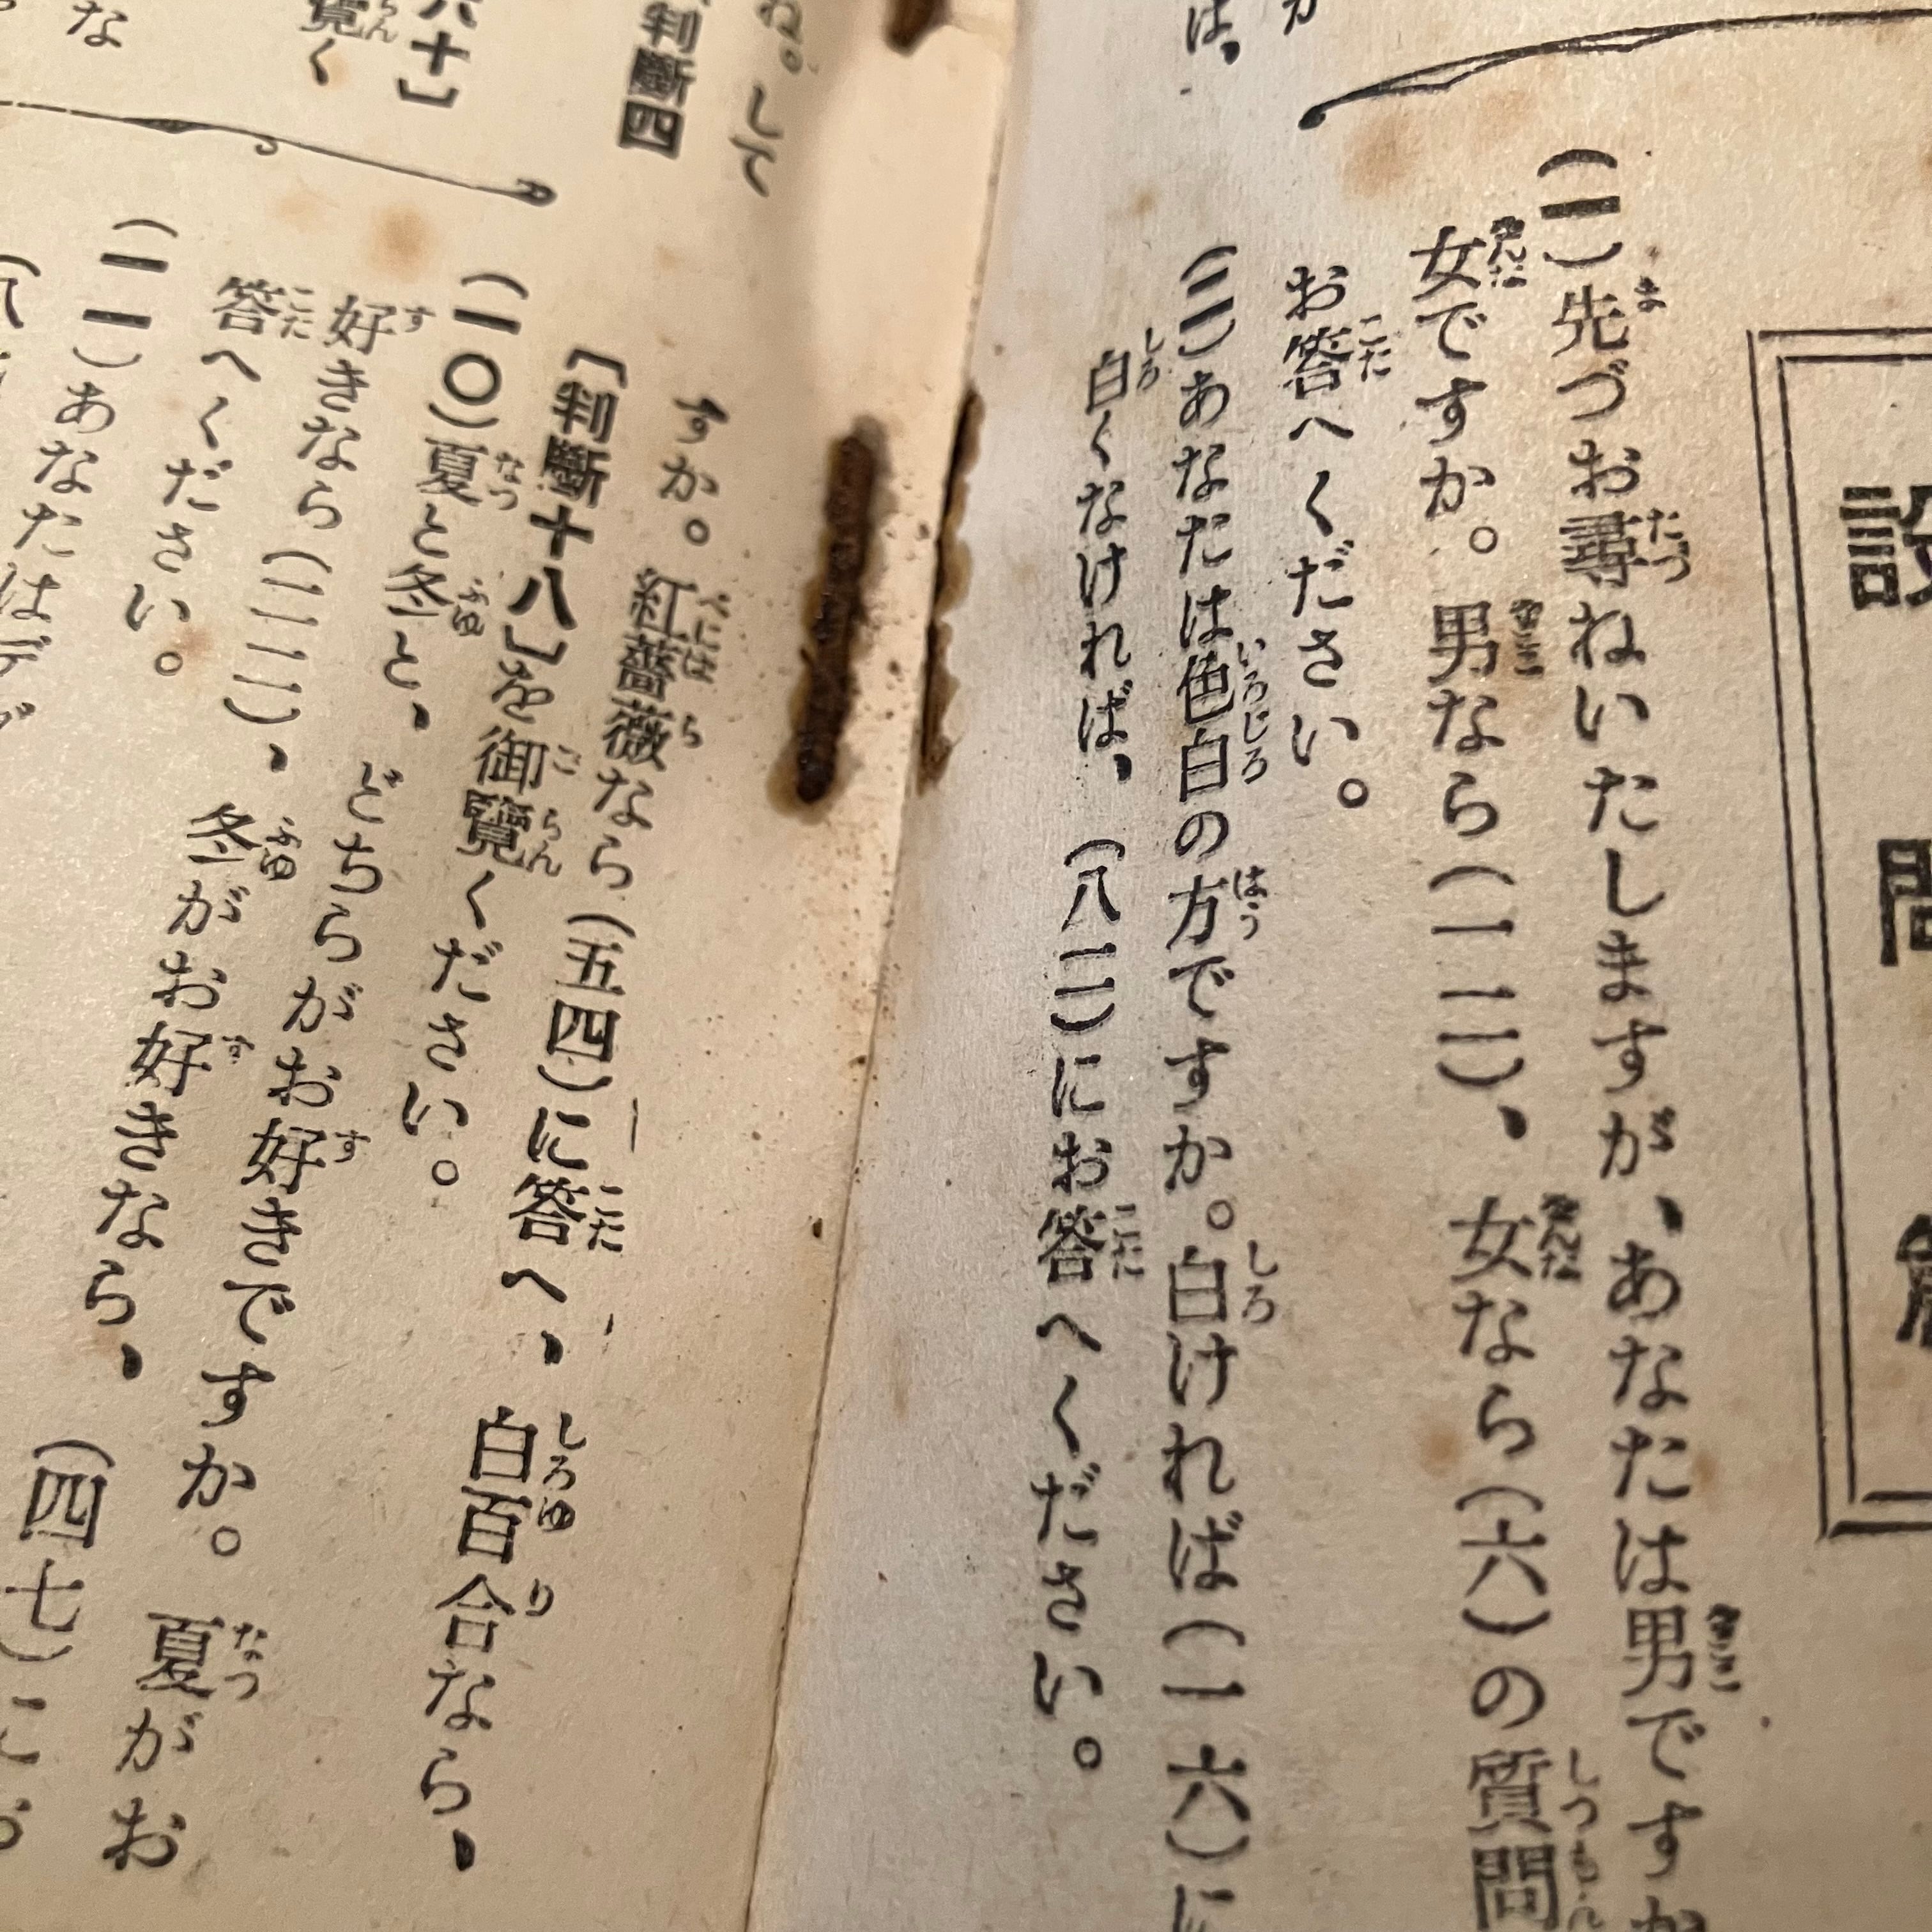 設問
(一)先づお尋ねいたしますが、あなたは男ですか
女ですか。男なら(一二)、女なら(六)の質問
お答へください。
(二)あなたは色白の方ですか。白ければ(一六)に
白くなければ、(八二)にお答へください。
は、
ね。して
判斷四
六十〕
覽く
な
すか。紅薔薇なら(五四)に答へ、白百合なら、
〔判斷十八〕を御覽ください。
(一〇)夏と冬と、どちらがお好きですか。夏がお
好きなら(二二)、冬がお好きなら、(四七)にお
答へください。
(一一)あなたはデ